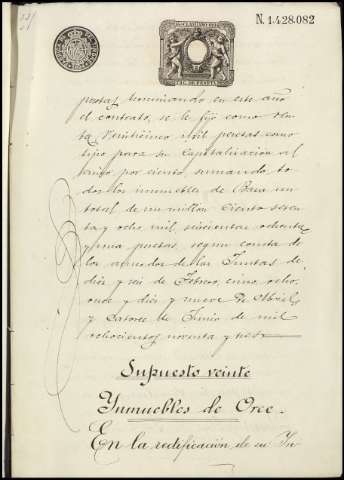 N. 1.428.082
pesetas terminando en este año
el contrato, se le fijó como ren
ta veinticinco mil pesetas como
tipo para su capitalización al
cinco por ciento, sumando to
dos los inmuebles de Baza un
total de un millón ciento seten
ta y ocho mil, seiscientas ochenta
y una pesetas, según consta de
los acuerdos de las Juntas de
diez y seis de Febrero, cinco, ocho,
once y diez y nueve de Abril
y catorce de Junio de mil
ochocientos noventa y tres
Supuesto veinte
Ynmuebles de Orce.
En la rectificación de su Yn